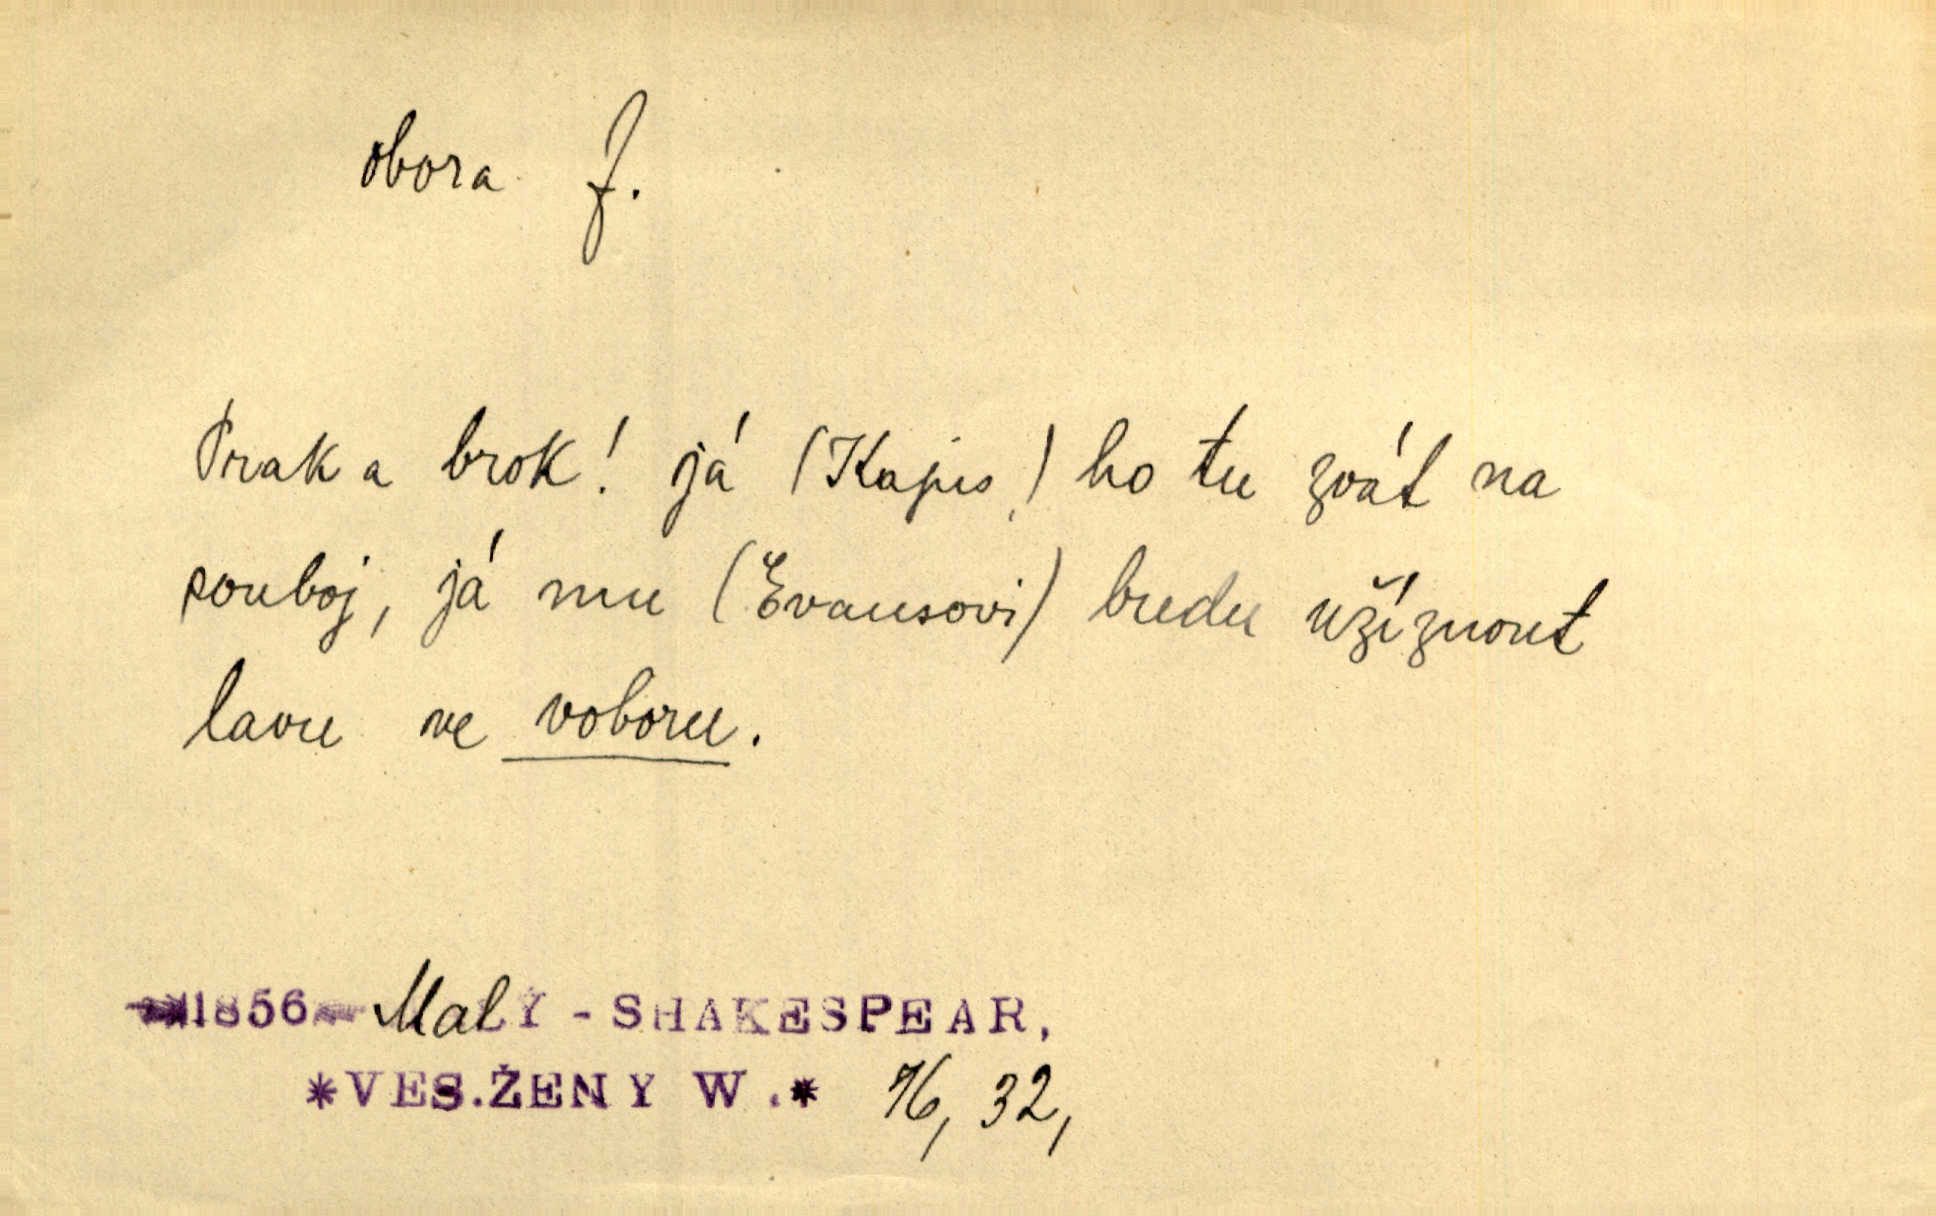 obora f.
Prak a brok! já (Kajus) ho tu zvát na
souboj, já mu (Evansovi) budu užíznout
lavu ve voboru.
1856 MALÝ - SHAKESPEAR,
*VES.ŽENY W.* 76, 32,